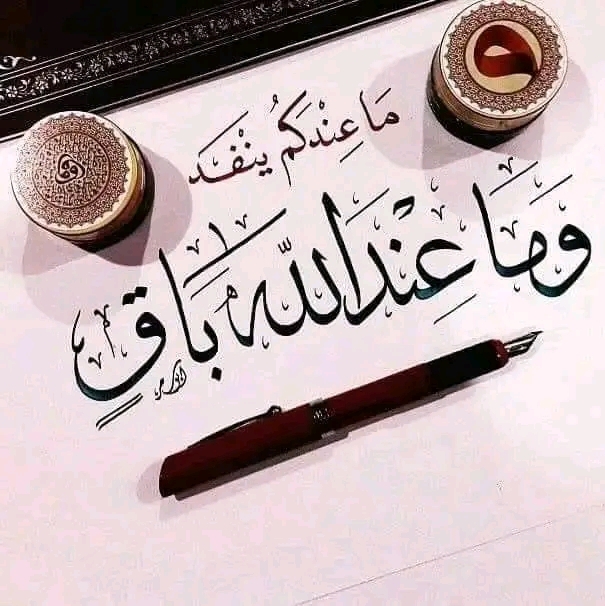 مَا عِنْدَكُمْ يَنْفَدُ
وَمَا عِنْدَ اللّٰهِ بَاقٍ